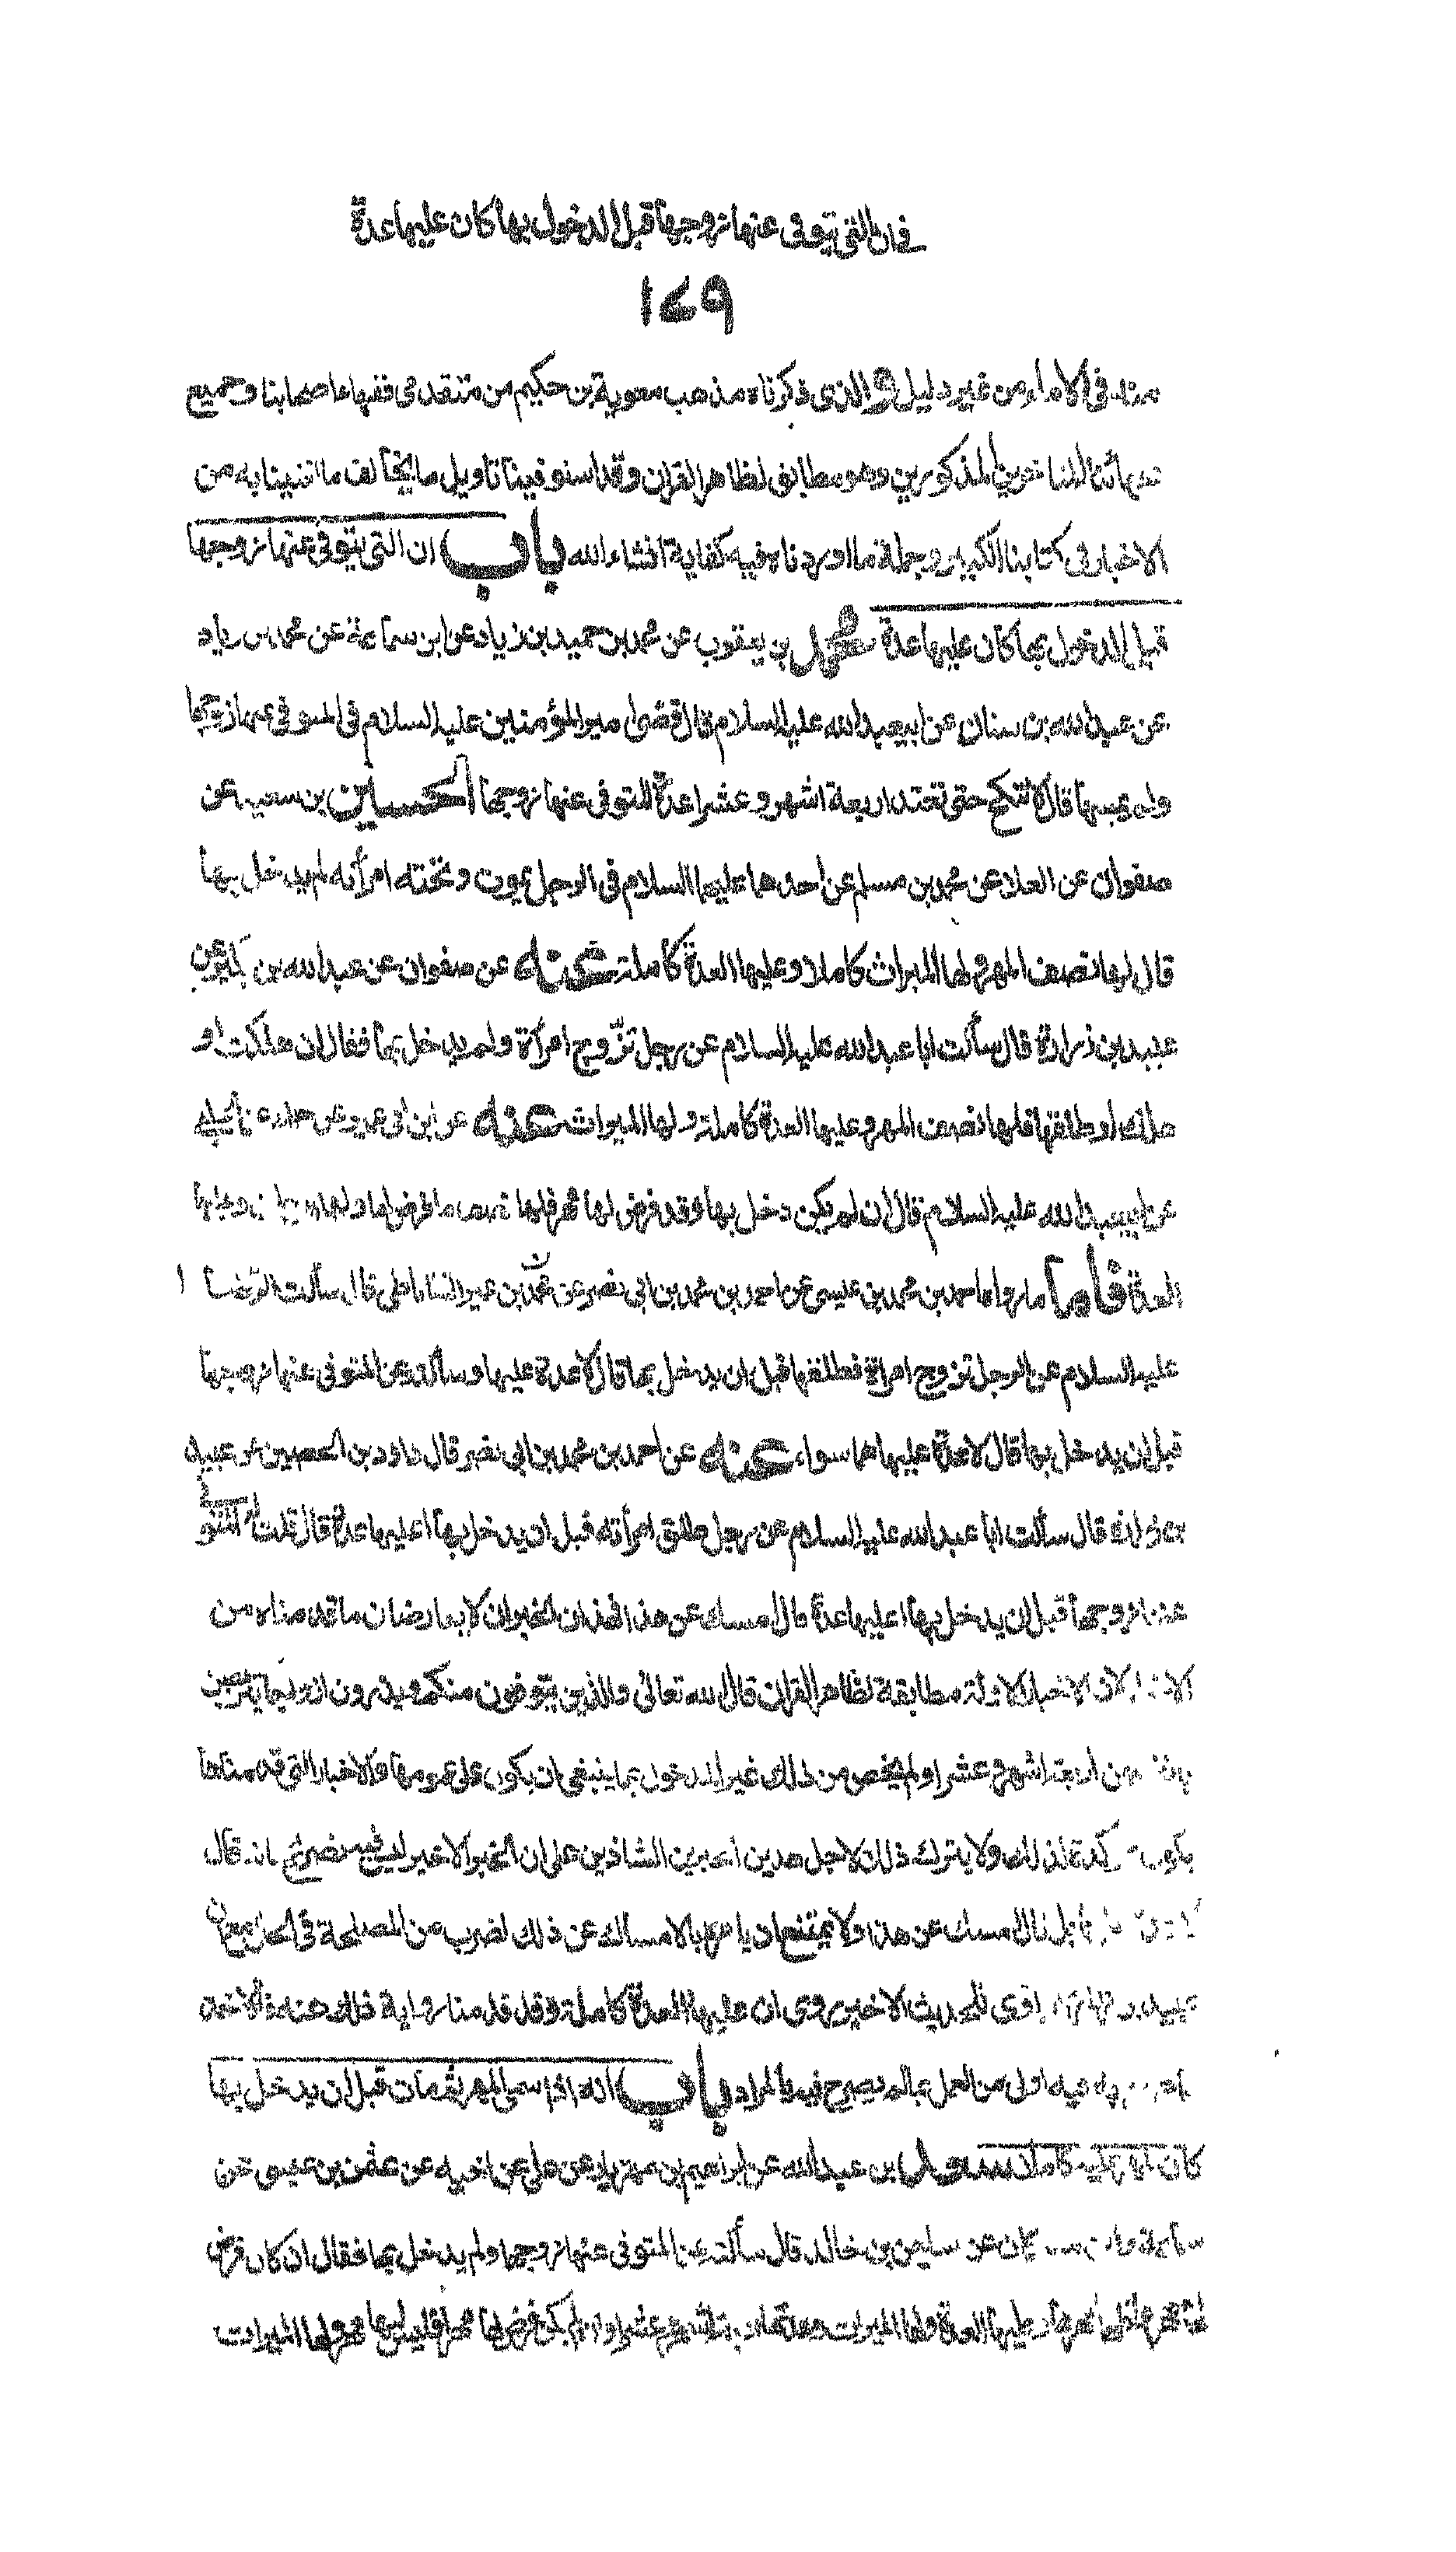 في ان التي يتوفى عنها زوجها قبل الدخول بها كان عليها عدة
١٧٩
مثله في الاماء من غير دليل والذى ذكرناه مذهب معوية بن حكيم من متقدمى فقهاء اصحابنا وجميع
فقهائنا المتاخرين المذكورين وهو مطابق لظاهر القران وقد استوفينا تاويل ما يخالف ما افتينا به من
الاخبار في كتابنا الكبير وجملة ما اوردناه فيه كفاية انشاء الله باب ان التى يتوفى عنها زوجها
قبل الدخول بها كان عليها عدة محمد بن يعقوب عن محمد بن حميد بن زياد عن ابن سماعة عن محمد بن زياد
عن عبد الله بن سنان عن ابيعبد الله عليه السلام قال قضى امير المؤمنين عليه السلام في المتوفى عنها زوجها
ولم يمسها قال لا تنكح حتى تعتد اربعة اشهر وعشرا عدة المتوفى عنها زوجها الحسين بن سعيد عن
صفوان عن العلا عن محمد بن مسلم عن احدهما عليهما السلام في الرجل يموت وتحته امرأته لم يدخل بها
قال لها نصف المهر ولها الميراث كاملا وعليها العدة كاملة عنه عن صفوان عن عبد الله بن بكير عن
عبيد بن زرارة قال سألت ابا عبد الله عليه السلام عن رجل تزّوج امرأة ولم يدخل بها فقال ان هلكت او
هلك او طلقها فلها نصف المهر وعليها العدة كاملة ولها الميراث عنه عن ابن ابى عمير عن حماد عن الحلبي
عن ابيعبد الله عليه السلام قال ان لم يكن دخل بها وقد فرض لها مهر فلها نصف ما فرض لها ولها الميراث وعليها
العدة فأما ما رواه احمد بن محمد بن عيسى عن احمد بن محمد بن ابى نصر عن محمد بن عمر الساباطى قال سألت الرضا
عليه السلام عن الرجل تزوج امراة فطلقها قبل ان يدخل بها قال لا عدة عليها وسألته عن المتوفى عنها زوجها
قبل ان يدخل بها قال لا عدة عليها هما سواء عنه عن احمد بن محمد بن ابى نصر قال داود بن الحصين عن عبيد
بن زرارة قال سألت ابا عبد الله عليه السلام عن رجل طلق امرأته قبل ان يدخل بها اعليها عدة قال لا قلت له المتوفى
عنها زوجها قبل ان يدخل بها اعليها عدة قال امسك عن هذا فهذان الخبران لا يعارضان ما قدمناه من
الاخبار لان الاخبار الاولة مطابقة لظاهر القران قال الله تعالى والذين يتوفون منكم ويذرون ازواجا يتربصن
بانفسهن أربعة اشهر وعشرا ولم يخص من ذلك غير المدخول بها ينبغى ان يكون على عمومها والاخبار التى قدمناها
يكون مؤكدة لذلك ولا يترك ذلك لاجل هذين الخبرين الشاذين على ان الخبر الاخير ليس فيه تصريح انه قال
قال امسك عن هذا ولا يمتنع ان يامره بالامساك عن ذلك لضرب من المصلحة
عبيد بن زرارة راوى الحديث الاخير روى ان عليها العدة كاملة وقد قدمنا رواية ذلك عنه فالاخذ
اولى من العمل بما لم يصرح فيه بالمراد باب انه اذا سمى المهر ثم مات قبل ان يدخل بها
كان لها المهر كاملا سعد بن عبد الله عن ابراهيم بن مهزيار عن على عن اخيه عن عثمن بن عيسى عن
سماعة وابن مسكان عن سليمن بن خالد قال سألته عن المتوفى عنها زوجها ولم يدخل بها فقال ان كان فرض
لها مهرا فلها مهرها وعليها العدة ولها الميراث وعدتها اربعة اشهر وعشرا وان لم يكن فرض لها مهرا فليس لها مهر ولها الميراث